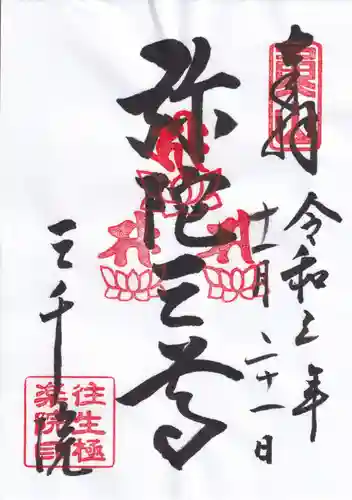 奉拝
令和三年
十一月二十一日
弥陀三尊
三千院
往生極
楽院印